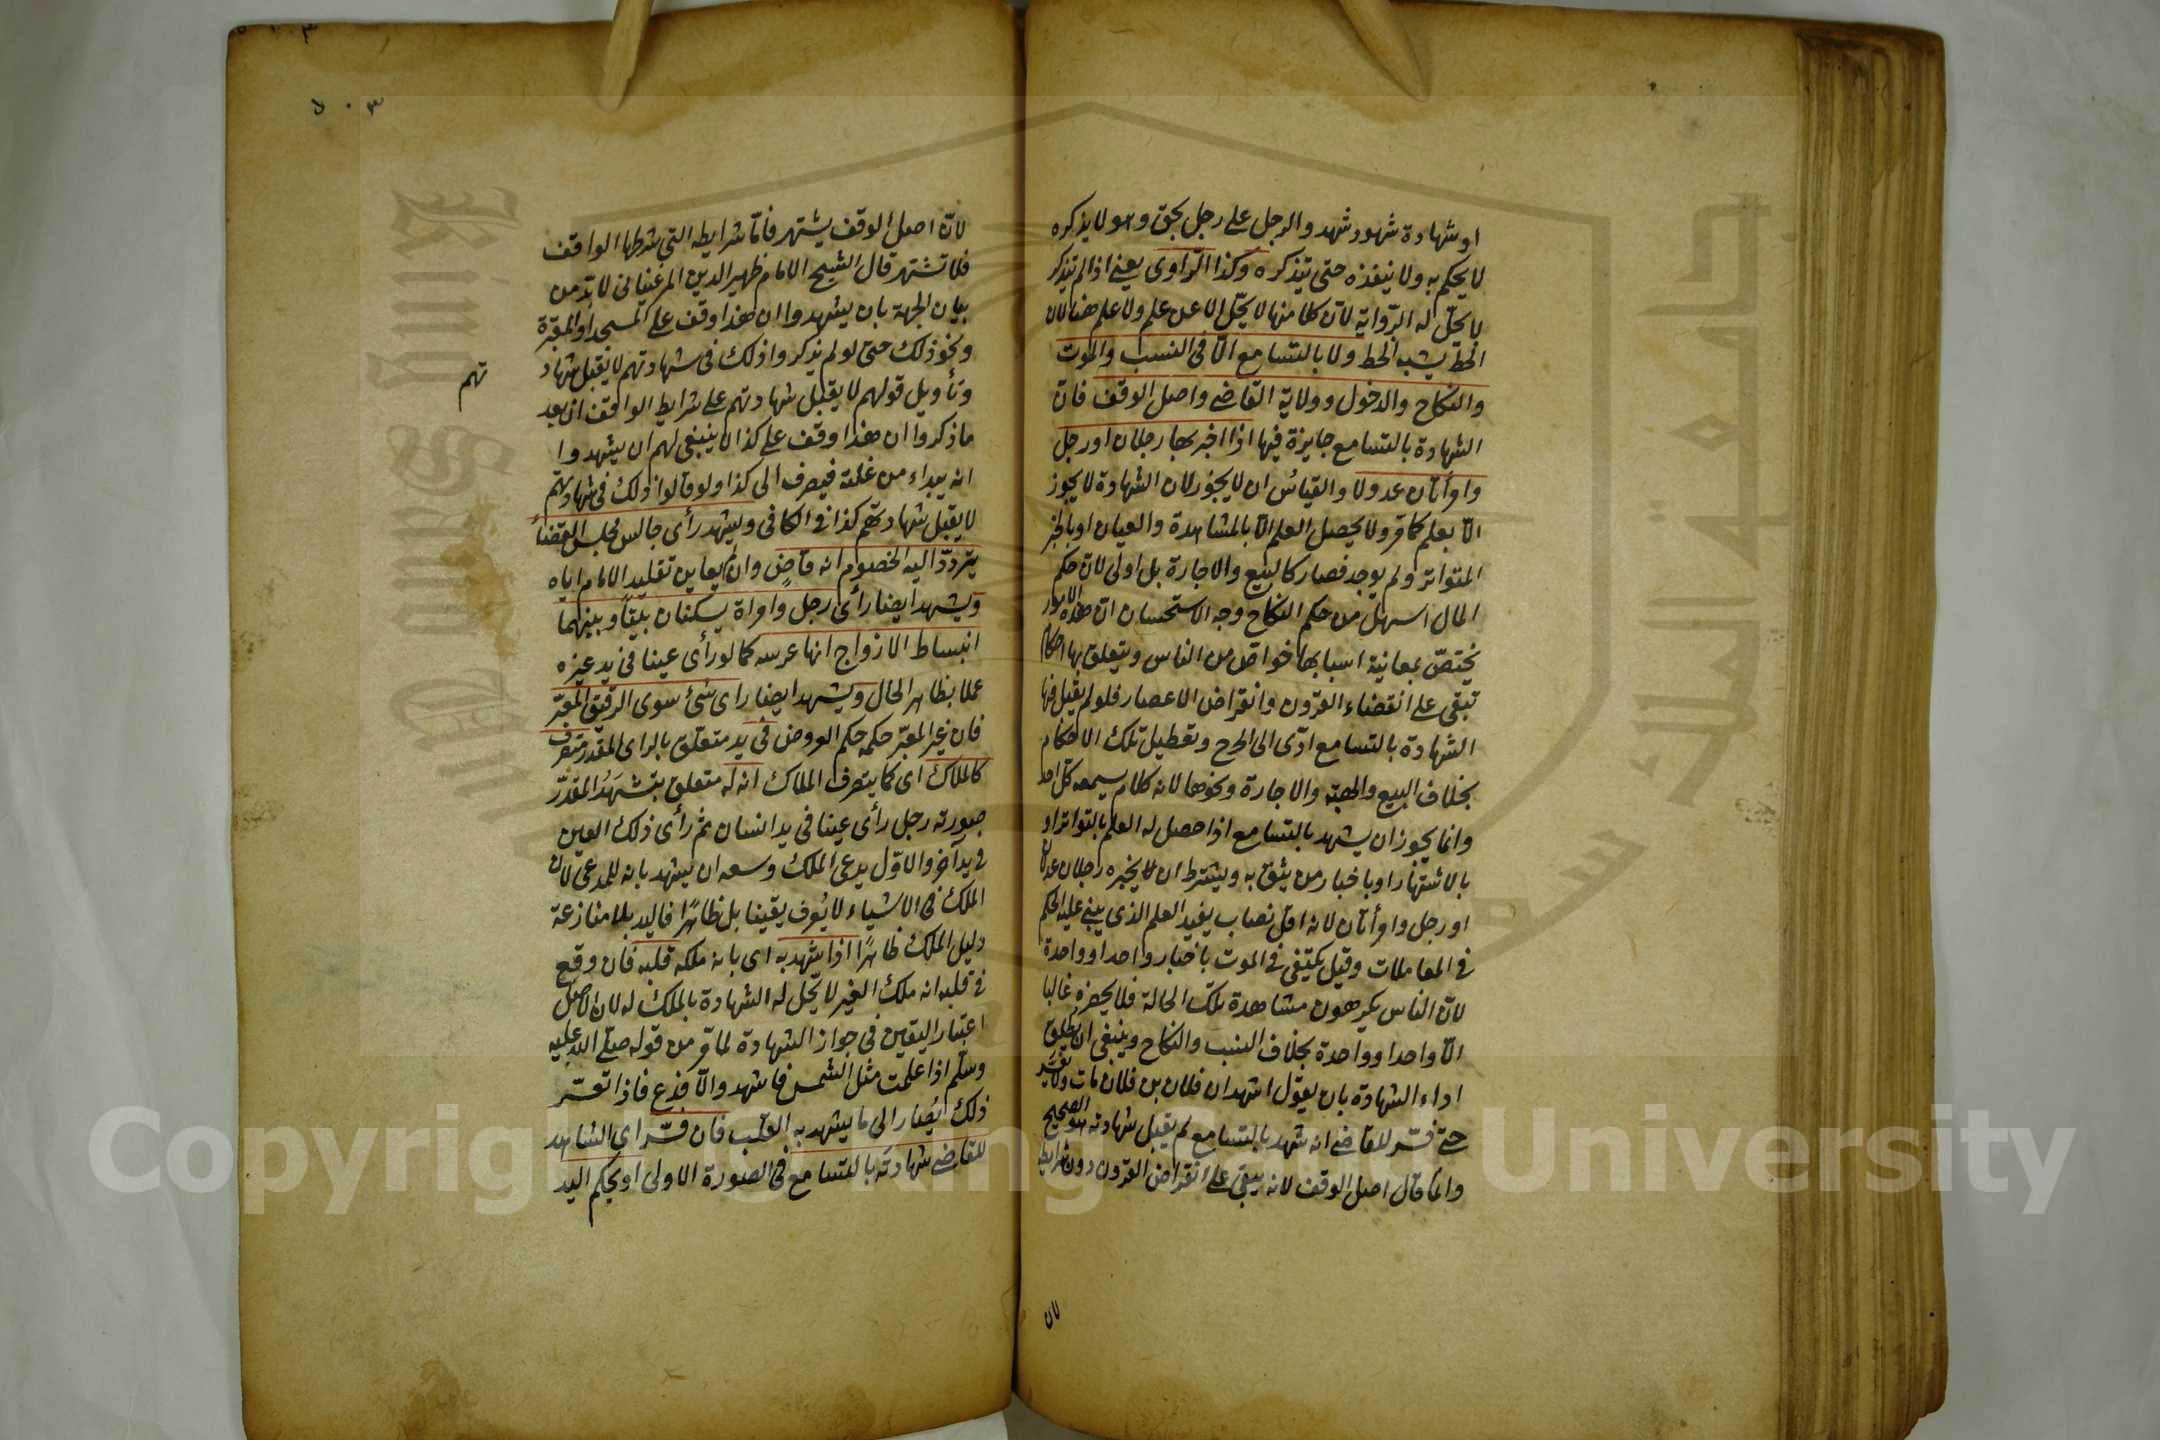 او شهادة شهود شهدوا لرجل على رجل بحق وهو لا يذكره
لا يحكم به ولا ينفذه حتى يتذكره وكذا الراوى يعنى اذا لم يتذكر
لا يحل له الرواية لان كلا منها لا يحل الا عن علم ولا علم هنا لان
الخط يشبه الخط ولا بالتسامع الا فى النسب والموت
والنكاح والدخول وولاية القاضى واصل الوقف فان
الشهادة بالتسامع جايزة فيها اذا اخبر بها رجلان او رجل
وامرأتان عدولا والقياس ان لا يجوز لان الشهادة لا يجوز
الا بعلم كما مر ولا يحصل العلم الا بالمشاهدة والعيان او بالخبر
المتواتر ولم يوجد فصار كالبيع والاجارة بل اولى لان حكم
المال اسهل من حكم النكاح وجه الاستحسان ان هذه الامور
يختص بمعاينة اسبابها خواص من الناس ويتعلق بها احكام
تبقى على انقضاء القرون وانقراض الاعصار فلو لم يقبل فيها
الشهادة بالتسامع ادى الى الحرج وتعطيل تلك الاحكام
بخلاف البيع والهبة والاجارة ونحوها لانه كلام يسمعه كل احد
وانما يجوز ان يشهد بالتسامع اذا حصل له العلم بالتواتر او
بالاشتهار او باخبار من يثق به ويشترط ان يخبره رجلان عدلان
او رجل وامرأتان لانه اقل نصاب يفيد العلم الذى يبنى عليه الحكم
فى المعاملات وقيل يكتفى فى الموت باخبار واحد او واحدة
لان الناس يكرهون مشاهدة تلك الحالة فلا يحضره غالبا
الا واحد او واحدة بخلاف النسب والنكاح وينبغى ان يطلق
اداء الشهادة بان يقول اشهد ان فلان بن فلان مات ولا يفسر
حتى فسر للقاضى انه شهد بالتسامع لم يقبل شهادته هو الصحيح
وانما قال اصل الوقف لانه يبقى على انقراض القرون دون شرايطه
لان
لان اصل الوقف يشتهر فاما شرايطه التى شرطها الواقف
فلا تشتهر قال الشيخ الامام ظهير الدين المرغينانى لا بد من
بيان الجهة بان يشهدوا ان هذا وقف على المسجد او المقبرة
ونحو ذلك حتى لو لم يذكروا ذلك فى شهادتهم لا يقبل شهاد
تهم
وتأويل قولهم لا يقبل شهادتهم على شرايط الواقف ان بعد
ما ذكروا ان هذا وقف على كذا لا ينبغى لهم ان يشهدوا
انه يبداء من غلته فيصرف الى كذا ولو قالوا ذلك فى شهادتهم
لا يقبل شهادتهم كذا فى الكافى ويشهد رأى جالس مجلس القضاء
يتردد اليه الخصوم انه قاض وان لم يعاين تقليد الامام اياه
ويشهد ايضا رأى رجل وامراة يسكنان بيتا وبينهما
انبساط الازواج انها عرسه كما لو رأى عينا فى يد غيره
عملا بظاهر الحال ويشهد ايضا راى شئ سوى الرقيق المعبر
فان غير المعبر حكمه حكم العروض فى يد متعلق بالراى المقدر متصرف
كالملاك اى كما يتصرف الملاك انه له متعلق بتشهد المقدر
صورته رجل رأى عينا فى يد انسان ثم رأى ذلك العين
فى يد آخر والاول يدعى الملك وسعه ان يشهد بانه للمدعى لان
الملك فى الاشياء لا يعرف يقينا بل ظاهرا فاليد بلا منازعة
دليل الملك ظاهرا اذا شهد به اى بانه ملكه قلبه فان وقع
فى قلبه انه ملك الغير لا يحل له الشهادة بالملك له لان الاصل
اعتبار اليقين فى جواز الشهادة لما مر من قوله صلى الله عليه
وسلم اذا علمت مثل الشمس فاشهد والا فدع فاذا تعسر
ذلك يصار الى ما يشهد به القلب فان فسر اى الشاهد
للقاضى شهادته بالتسامع فى الصورة الاولى او بحكم اليد
٣٠٥
Copyright © King Saud University
King Saud University
جامعة الملك سعود